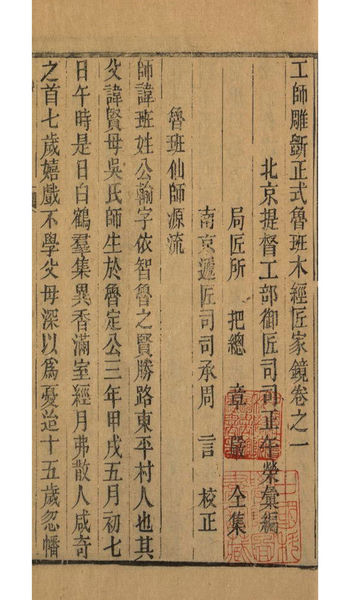 工師雕斵正式魯班木經匠家鏡卷之一
北京提督工部御匠司司正午榮彙編
局匠所 把總 章嚴 仝集
南京遞匠司司承周 言 校正
魯班仙師源流
師諱班姓公輸字依智魯之賢勝路東平村人也其
父諱賢母吳氏師生於魯定公三年甲戌五月初七
日午時是日白鶴羣集異香滿室經月弗散人咸奇
之首七歲嬉戲不學父母深以爲憂迨十五歲忽幡